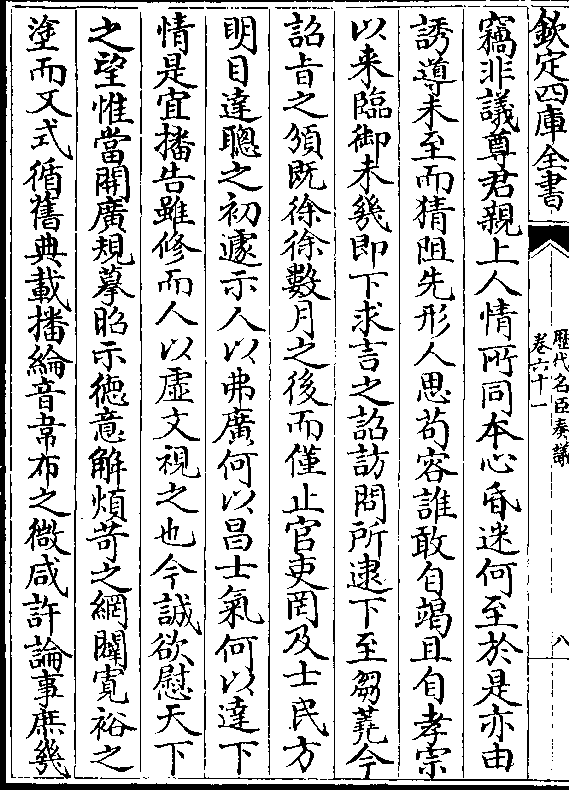 欽定四庫全書
歴代名臣奏議
卷六十一
八
竊非議尊君親上人情所同本心昏迷何至於是亦由
誘導未至而猜阻先形人思茍容誰敢自竭且自孝宗
以来臨御未幾即下求言之詔訪問所逮下至芻蕘今
詔㫖之頒既徐徐數月之後而僅止官吏罔及士民方
明目達聰之初遽示人以弗廣何以昌士氣何以達下
情是宜播告雖修而人以虛文視之也今誠欲慰天下
之望惟當開廣規摹昭示徳意解煩苛之網闢寛裕之
塗而又式循舊典載播綸音韋布之微咸許論事庶幾